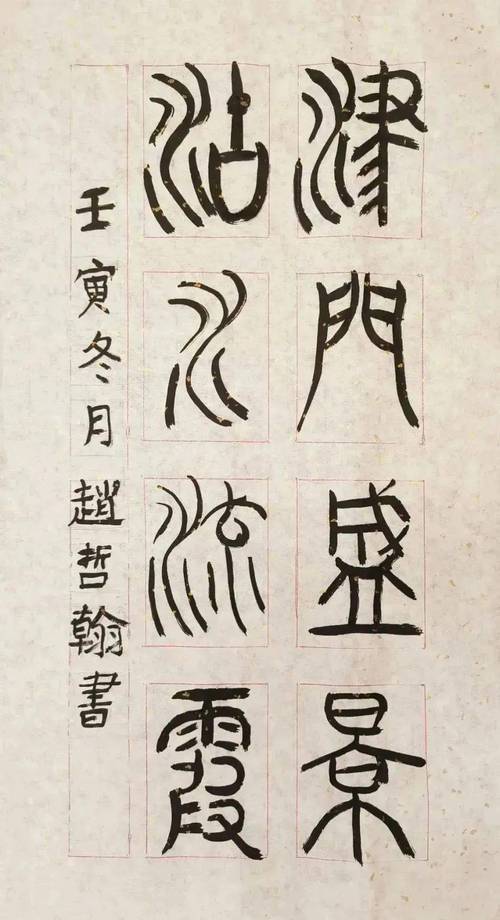 津門盛景
沽水流霞
壬寅冬月趙哲翰書